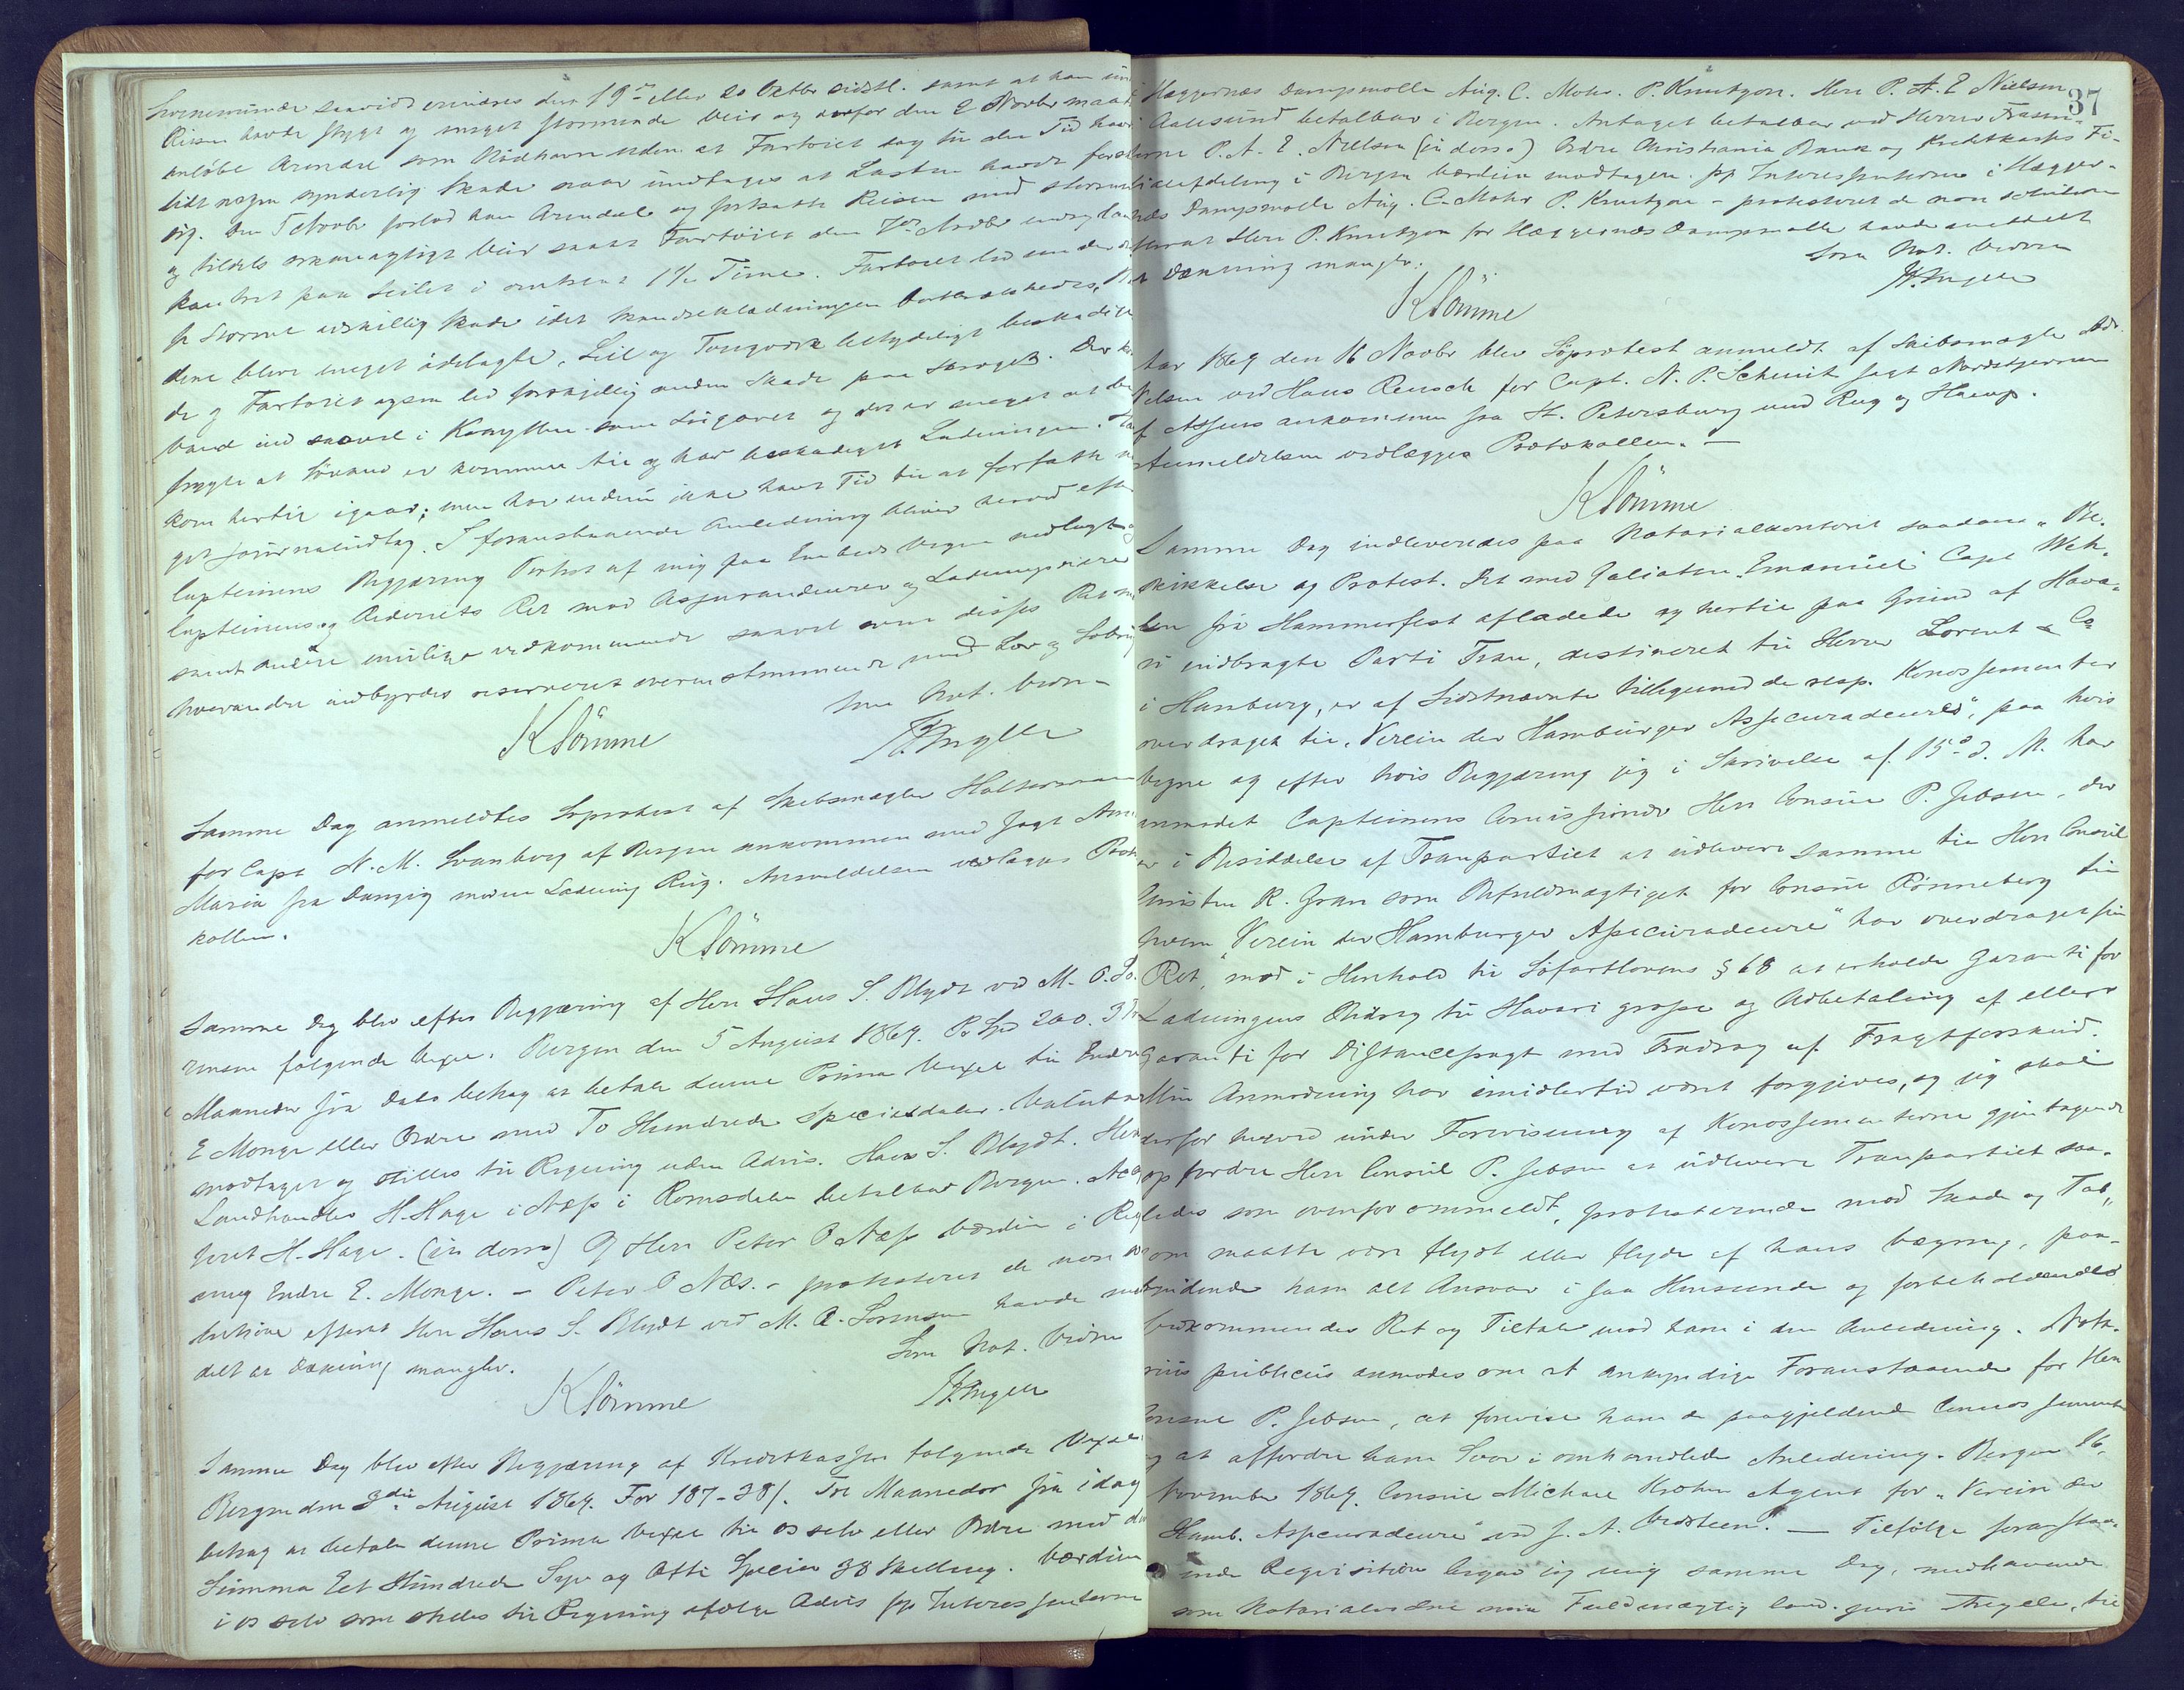 Svinemünde saavidt erindres den 19de eller 20 Oktbr sidstl. samt at han
Reisen havde stygt og meget stormende Veir og derfor den 2 Novbr maat
anløbe Arendal som Nødhavn uden at Fartøiet dog til den Tid havde
lidt nogen synderlig Skade naar undtages at Lasten havde forskudt
sig. Den 5 Novbr forlod han Arendal og fortsatte Reisen med stormende
og tildels orkanagtigt Veir samt Fartøiet den 7de Novbr
kantret paa Seilet i omtrent 1½ Time. Fartøiet led
Storme adskillig Skade idet Skandseklædningen
dene bleve meget ødelagte, Seil og Tougværk betydeligt beskadige
de og Fartøiet ogsaa led forskjellig anden Skade paa Skroget. Der
Vand ind saavel i Kahytten som og det er meget at be
frygte at Søvand er kommen til og har beskadiget Ladningen. Han
kom hertil igaar; men har endnu ikke havt Tid til at forfatte
get Journaludtog. I foranstaaende Anledning bliver herved efter
Capteinens Begjæring Protest af mig paa Embeds Vegne nedlagt og
Capteinens og Rederiets Ret mod Assurandeurer og Ladningseiere
samt andre mulige vedkommende saavel som disses Ret mod
hverandre indbyrdes reserveret overensstemmende med Lov og
Som Not. Vidne
KLömme
Samme Dag anmeldtes Søprotest af Skibsmægler Haltermann
for Capt N. M. Svanberg af Bergen ankommen med Jagt Anna
Maria fra Danzig med en Ladning Rug. Anmeldelsen vedlægges Proto
kollen.
KLömme
Samme Dag blev efter Begjæring af Herr Hans S. Blydt ved M. O. So
rensen følgende Vexel: Bergen den 5 August 1869. Po Spd 200. 3 Tre
Maaneder fra Dato behag at betale denne Prima Vexel til Endre
E Monge eller Ordre med To Hundrede Speciesdaler. Valuta
modtaget og stilles til Regning uden Advis. Hans S. Blydt. Herr
Landhandler H. Hage i Næs i Romsdalen betalbar Bergen. Accep
teret H. Hage. (in dorso) Til Herr Peter O Næss Værdien i Reg
ning Endre E. Monge. – Peter O Næs. – protesteret de non so
lutione efterat Herr Hans S. Blydt ved M. O. Sorensen havde med
delt at Dækning mangler.
Som Not. Vidne
KLömme
Samme Dag blev efter Begjæring af Kreditkassen følgende Vexel
Bergen den 3die August 1869. For 187–38 ſ. Tre Maaneder fra idag
behag at betale denne Prima Vexel til os selv eller Ordre med den
Summa Et Hundrede Syv og Otti Specier 38 Skilling. Værdien
i os selv som stilles til Regning ifølge Advis pp Interessenterne
37
i Hæggernæs Dampmølle Aug. C. Mohr. P. Knudtzon. Herr P. A. E Nielsen
Aalesund betalbar i Bergen. Antaget betalbar ved Herrer
P. A. E. Nielsen (in dorso) Ordre Christiania Bank og Kreditkasses Fi-
lialafdeling i Bergen Værdien modtagen. pp Interessenterne i Hægger-
næs Dampmølle Aug. C. Mohr P. Knudtzon – protesteret de non solutione
efterat Herr P. Knudtzon for Hæggernæs Dampmølle havde meddelt
at Dækning mangler.
Som Not. Vidne
KLömme
Aar 1869 den 16 Novbr blev Søprotest anmeldt af Skibsmægler
Nilsen ved Hans Reusch for Capt. N. P. Schmit Jagt Nordstjernen
af Assens ankommen fra St. Petersburg med Rug og Hamp.
Anmeldelsen vedlægges Protokollen. –
KLömme
Samme Dag indleveredes paa Notarialkontoret saadan "Be-
skikkelse og Protest. Det med Galiasen "Emanuel" Capt Weh-
fra Hammerfest afladede og hertil paa Grund af Hava-
ri indbragte Parti Tran, destineret til Herrer Lorent & Co
i Hamburg, er af Sidstnævnte tilligemed de resp. Konossementer
overdraget til "Verein der Hamburger Assecuradeure", paa hvis
Vegne og efter hvis Begjæring jeg i Skrivelse af 15de d. M. har
anmodet Capteinens Commissionær Herr Consul P. Jebsen, der
er i Besiddelse af Tranpartiet at udlevere samme til Herr Consul
Christen K. Gran som Befuldmægtiget for Consul Rönneberg til
hvem "Verein der Hamburger Assecuradeure" har overdraget sin
Ret, mod i Henhold til Søfartslovens § 68 at erholde Garanti for
Ladningens Bidrag til Havari grosse og Udbetaling af eller
Garanti for Distancefragt med Fradrag af Fragtforskud.
Min Anmodning har imidlertid været forgjæves, og jeg skal
derfor herved under Forevisning af Konossementerne gjentagende
opfordre Herr Consul P. Jebsen at udlevere Tranpartiet saa-
ledes som ovenfor ommeldt, protesterende mod Skade og Tab,
som maatte være flydt eller flyde af hans Vægring, paa-
bydende ham alt Ansvar i saa Henseende og forbeholdende
Vedkommendes Ret og Tiltale mod ham i den Anledning. Nota-
rius publicus anmodes om at ankyndige Foranstaaende for Herr
Consul P. Jebsen, at forevise ham de paagjeldende Connossementer
og at affordre ham Svar i omhandlede Anledning. Bergen 16.
November 1869. Consul Michael Krohn Agent for "Verein der
Hamb. Assecuradeure" ved J. A. – Tilfølge foranstaa-
ende Requisition begav jeg mig samme Dag, medhavende
som Notarialvidne min Fuldmægtig cand. juris til